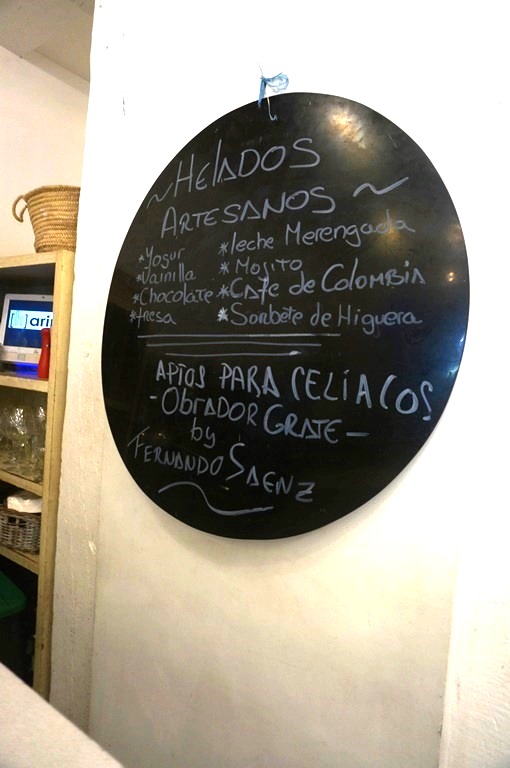 ~HELADOS
ARTESANOS~
*Yogur
*Vainilla
*Chocolate
*fresa
*leche Merengada
*Mojito
*Café de COLOMBIA
*Sorbete de Higuera
APTOS PARA CELÍACOS
-ObRADOR GRATE-
by
FERNANDO SAENZ
arin